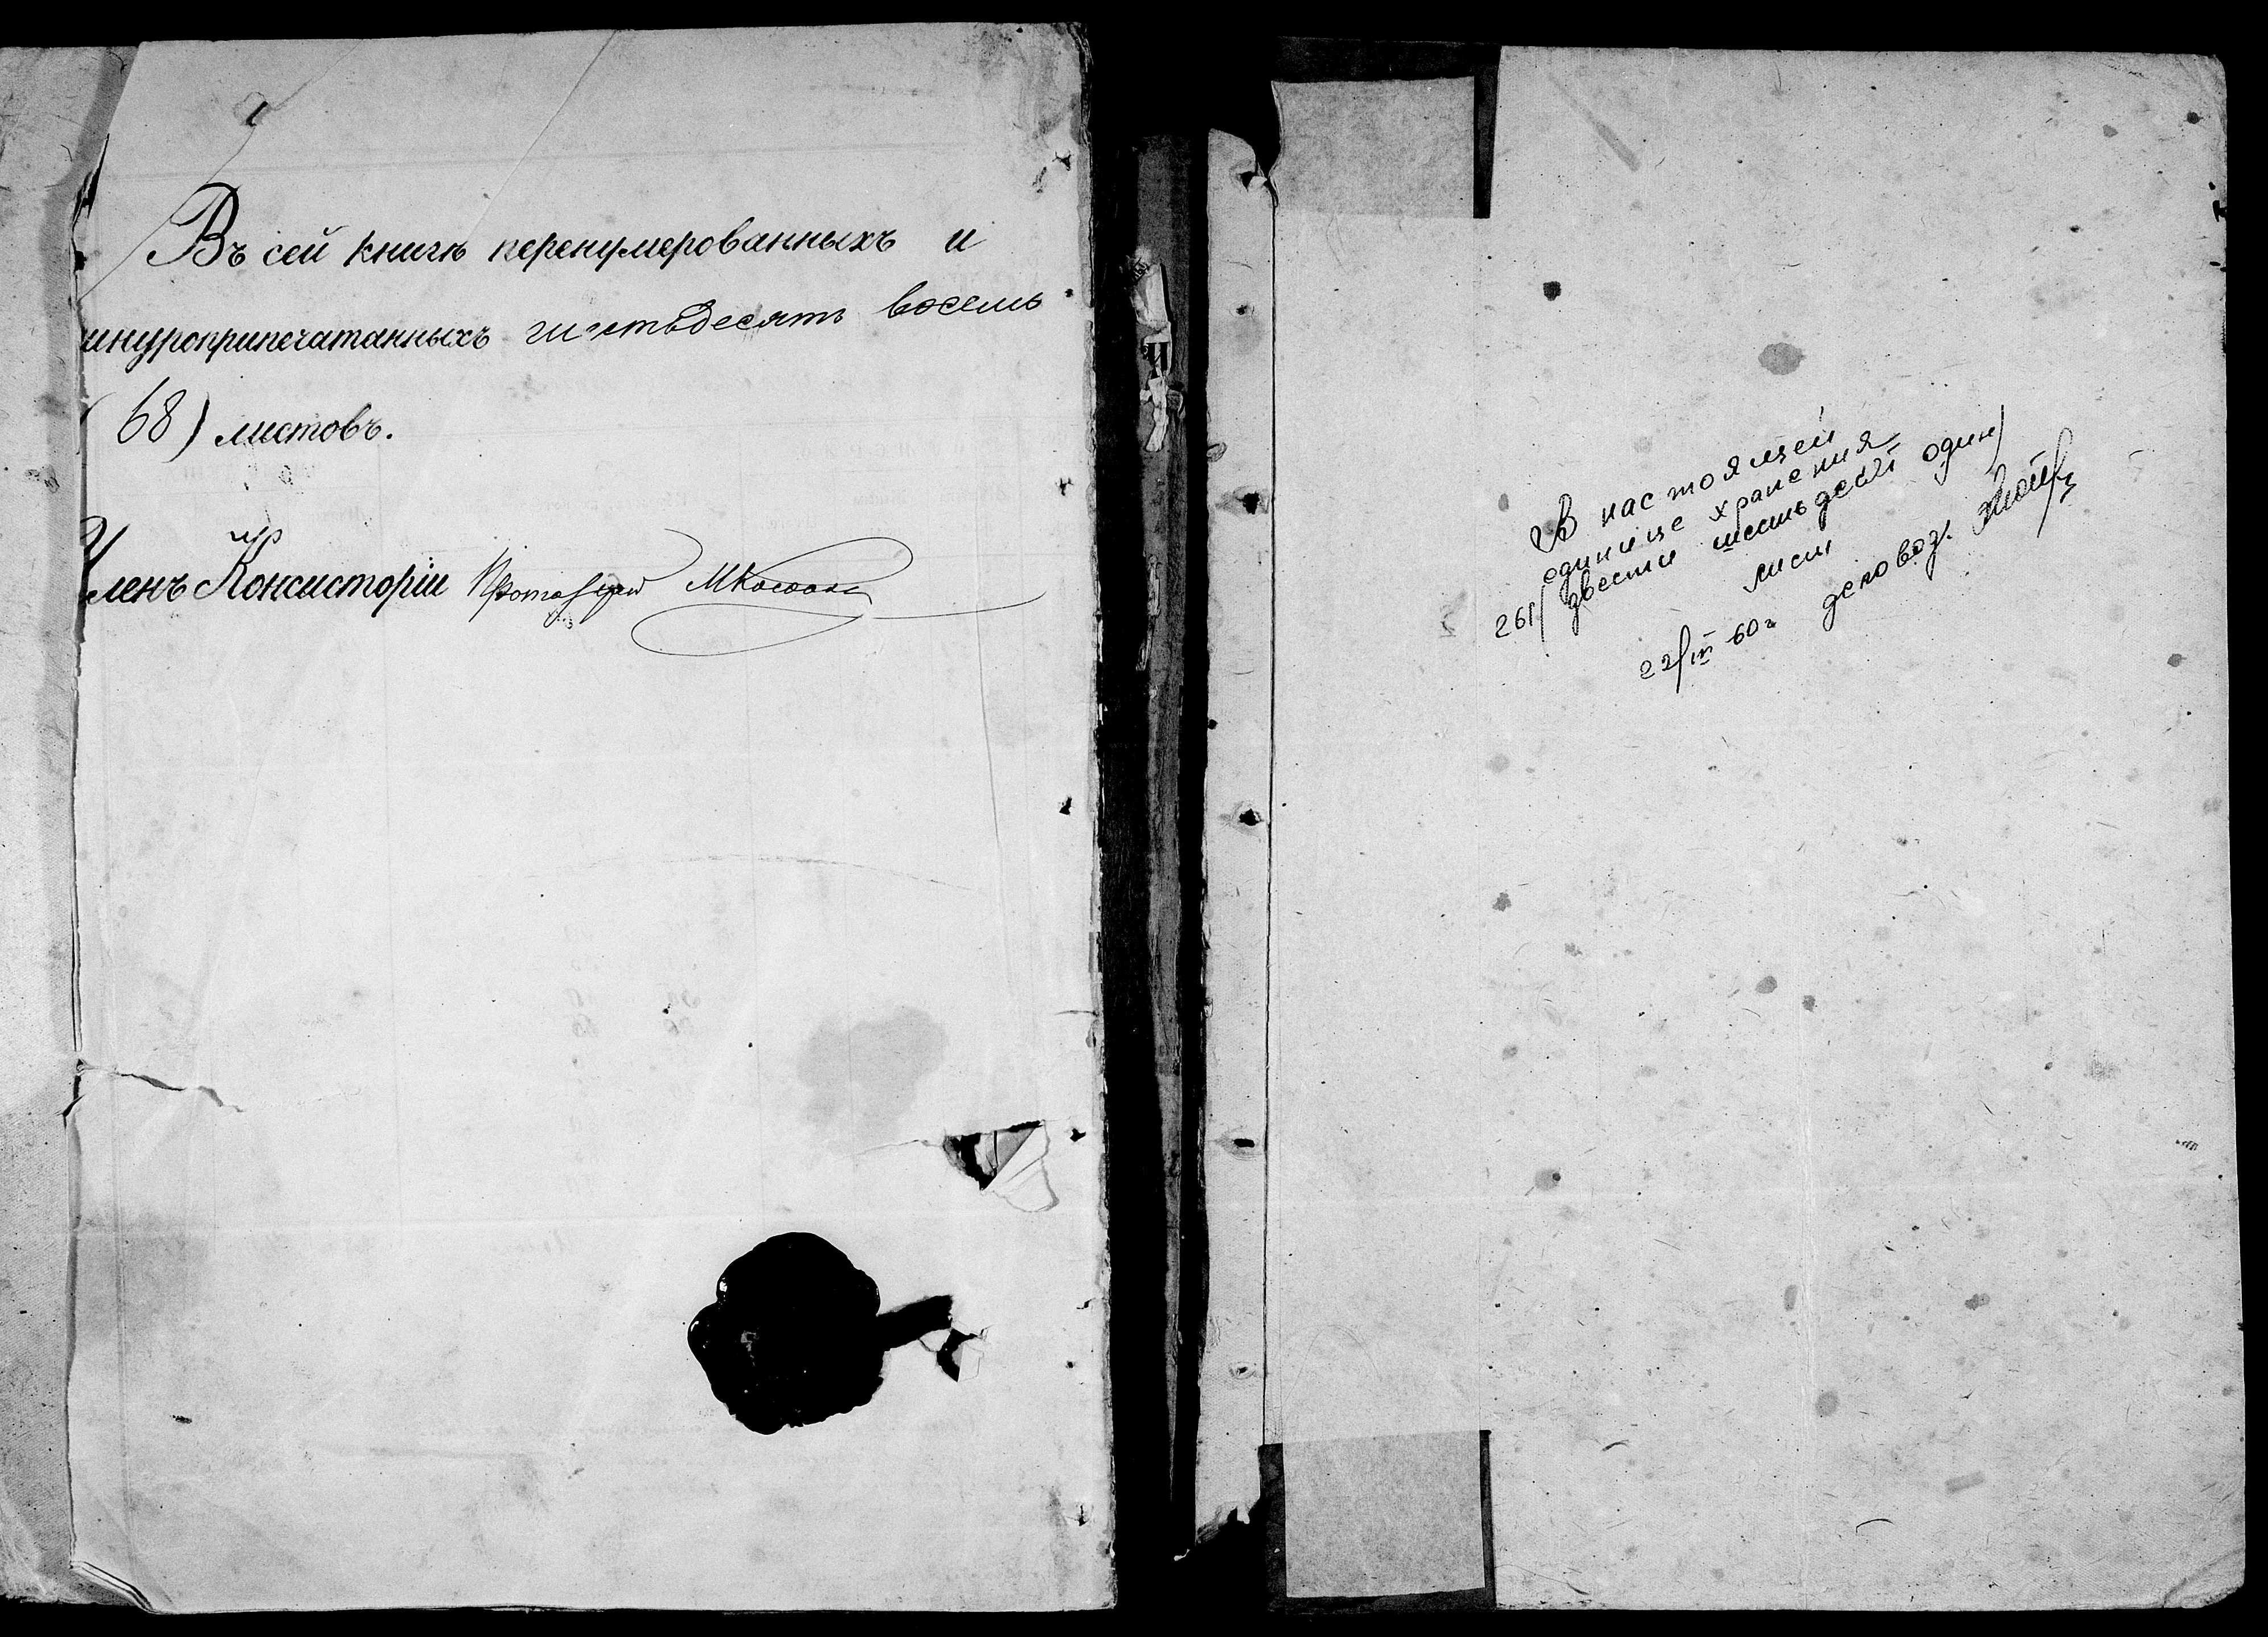 Въ сей книгѣ перенумерованныхъ и
шнуроприпечатанныхъ шестьдесятъ восемь
(68) листовъ.
Членъ Консисторіи Протоіерей
В настоящей
единице хранения
261/ двести шестьдесят один/
лист
22/IV 60 г деловод.